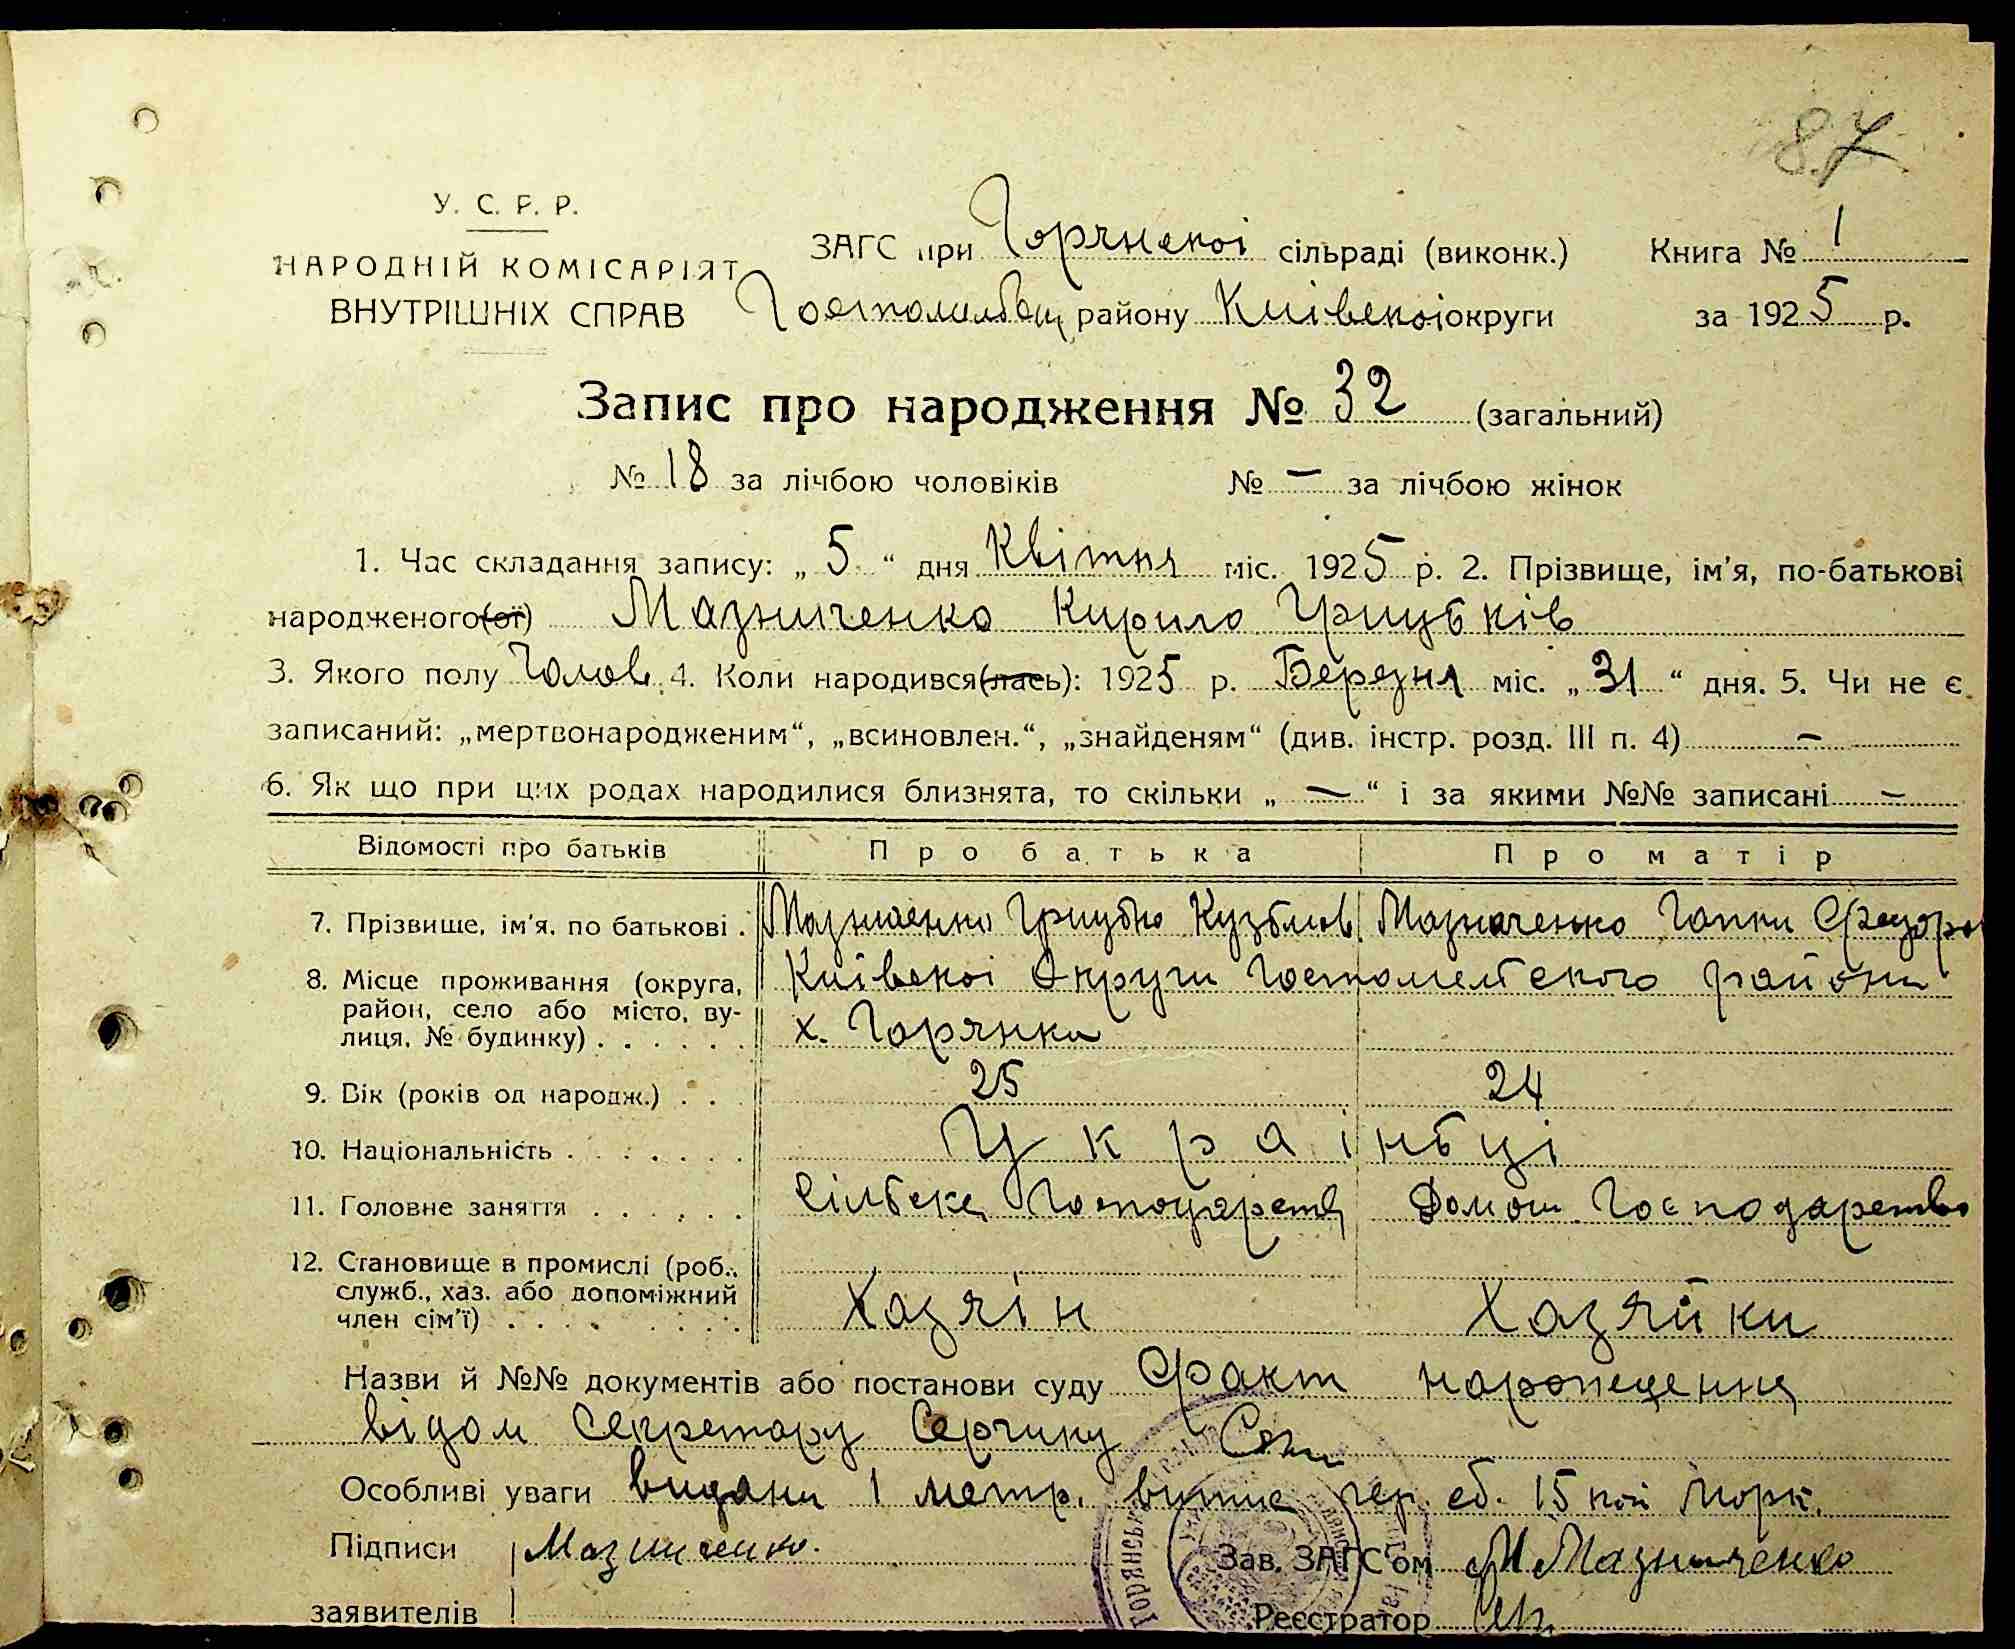 87
У. С. Р. Р.
НАРОДНІЙ КОМІСАРІЯТ
ВНУТРІШНІХ СПРАВ
ЗАГС при Горянскоі сільраді (виконк.) Книга № 1
району Киівскоі округи за 1925 р.
Запис про народження № 32 (загальний)
№ 18 за лічбою чоловіків № — за лічбою жінок
1. Час складання запису: „5“ дня Квітня міс. 1925 р. 2. Прізвище, ім’я, по-батькові
народженого(ої) Мазниченко Кирило Грицьків
3. Якого полу Чолов. 4. Коли народився(лась): 1925 р. Березня міс. „31“ дня. 5. Чи не є
записаний: „мертвонародженим“, „всиновлен.“, „знайденям“ (див. інстр. розд. III п. 4) —
6. Як що при цих родах народилися близнята, то скільки „ — “ і за якими №№ записані —
Відомості про батьків Про батька Про матір
7. Прізвище, ім’я, по батькові . Мазниченко Грицько Кузьмов Мазниченко Гапки Федоро
8. Місце проживання (округа, район, село або місто, вулиця, № будинку) . . . . . . Киівскоі Округи Гостомельского района
х. Горянка
9. Вік (років од народж.) . . 25 24
10. Національність . . . . . . . Украіньці
11. Головне заняття . . . . . . Сільске Господарств Домаш. Господарство
12. Становище в промислі (роб., служб., хаз. або допоміжний член сім’ї) . . . . . . . . Хазяін Хазяйки
Назви й №№ документів або постанови суду Факт
відом Секретару Серчику
Особливі уваги видани 1 метр. випис 15 коп Морк.
Підписи Мазниченко. Зав. ЗАГС’ом М Мазниченко
заявителів Реєстратор